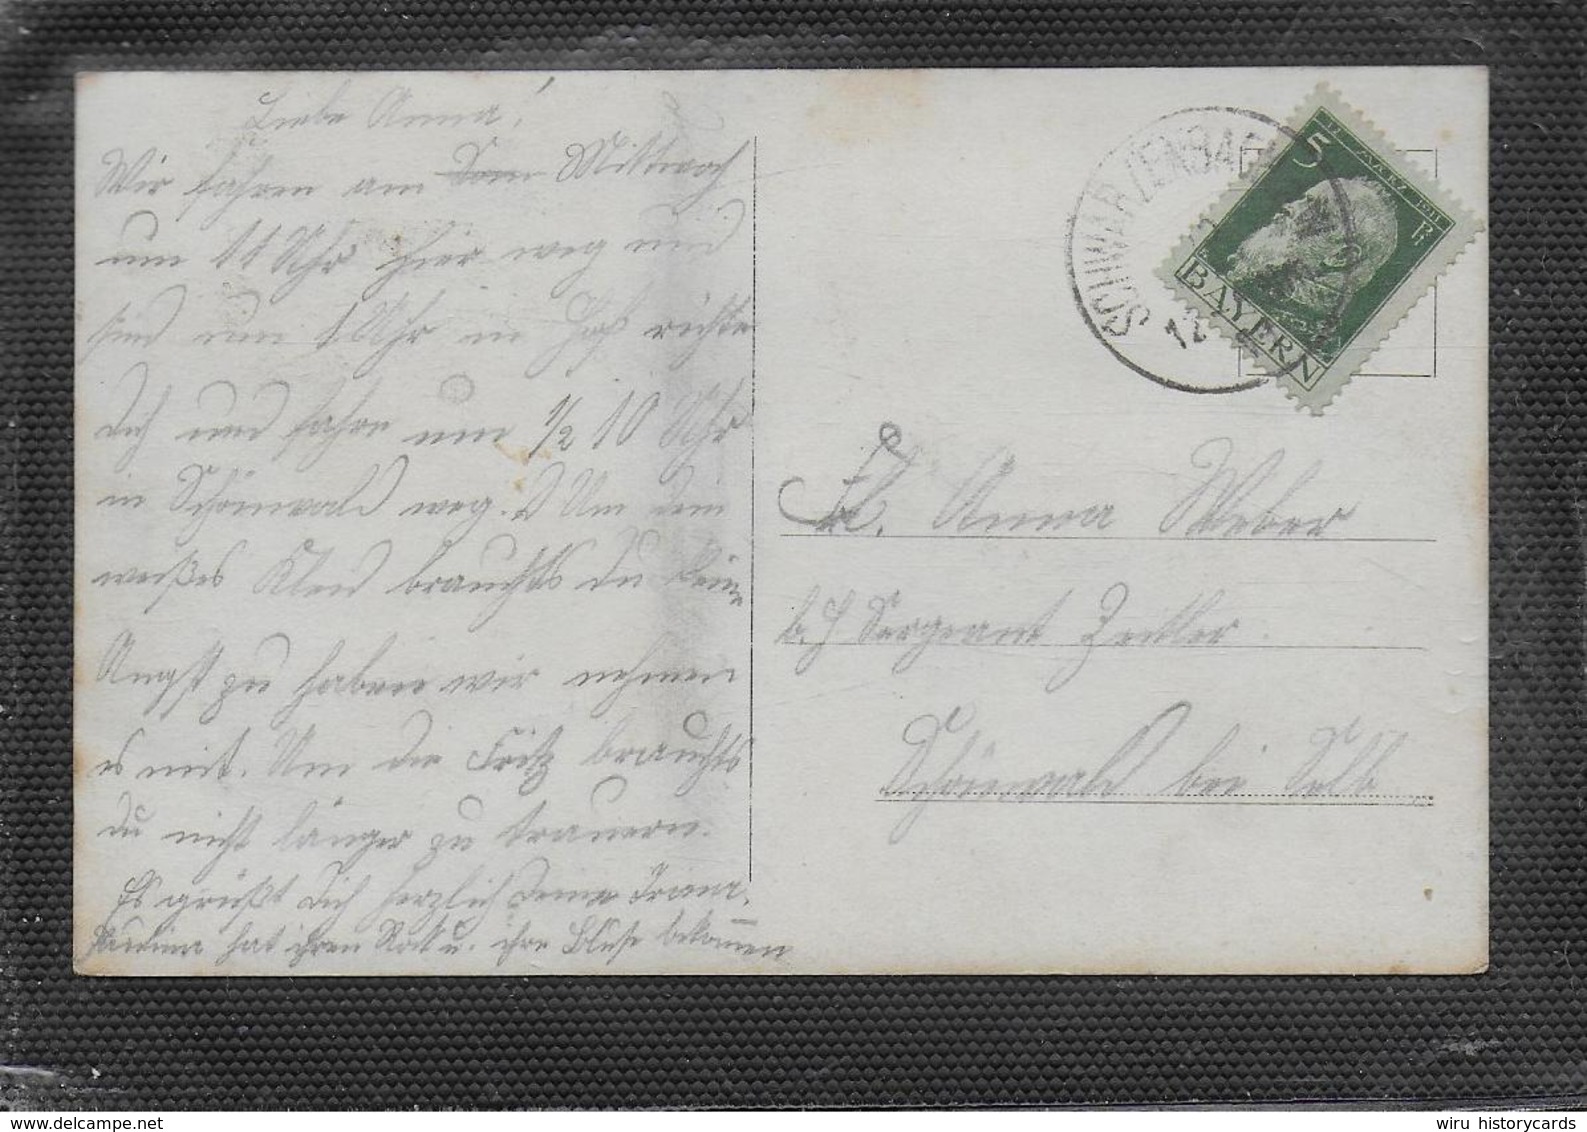 Liebe Anna!
Wir fahren am Son Mittwoch
um 11 Uhr hier weg und
sind um 1 Uhr in Hof richte
dich und fahre um 1/2 10 Uhr
in Schönwald weg. Um dein
weißes Kleid brauchts du keine
Angst zu haben wir nehmen
es mit. Um die Fritz brauchts
du nicht länger zu trauern.
Es grüßt dich herzlich deine
hat ihren Rock u. ihre Bluse bekommen
SCHWARZENBACH
12
5
12. MÄRZ 1911
BAYERN
Frl. Anna Weber
b. H Sergeant Zeitler
Schönwald bei Selb
wiru historycards